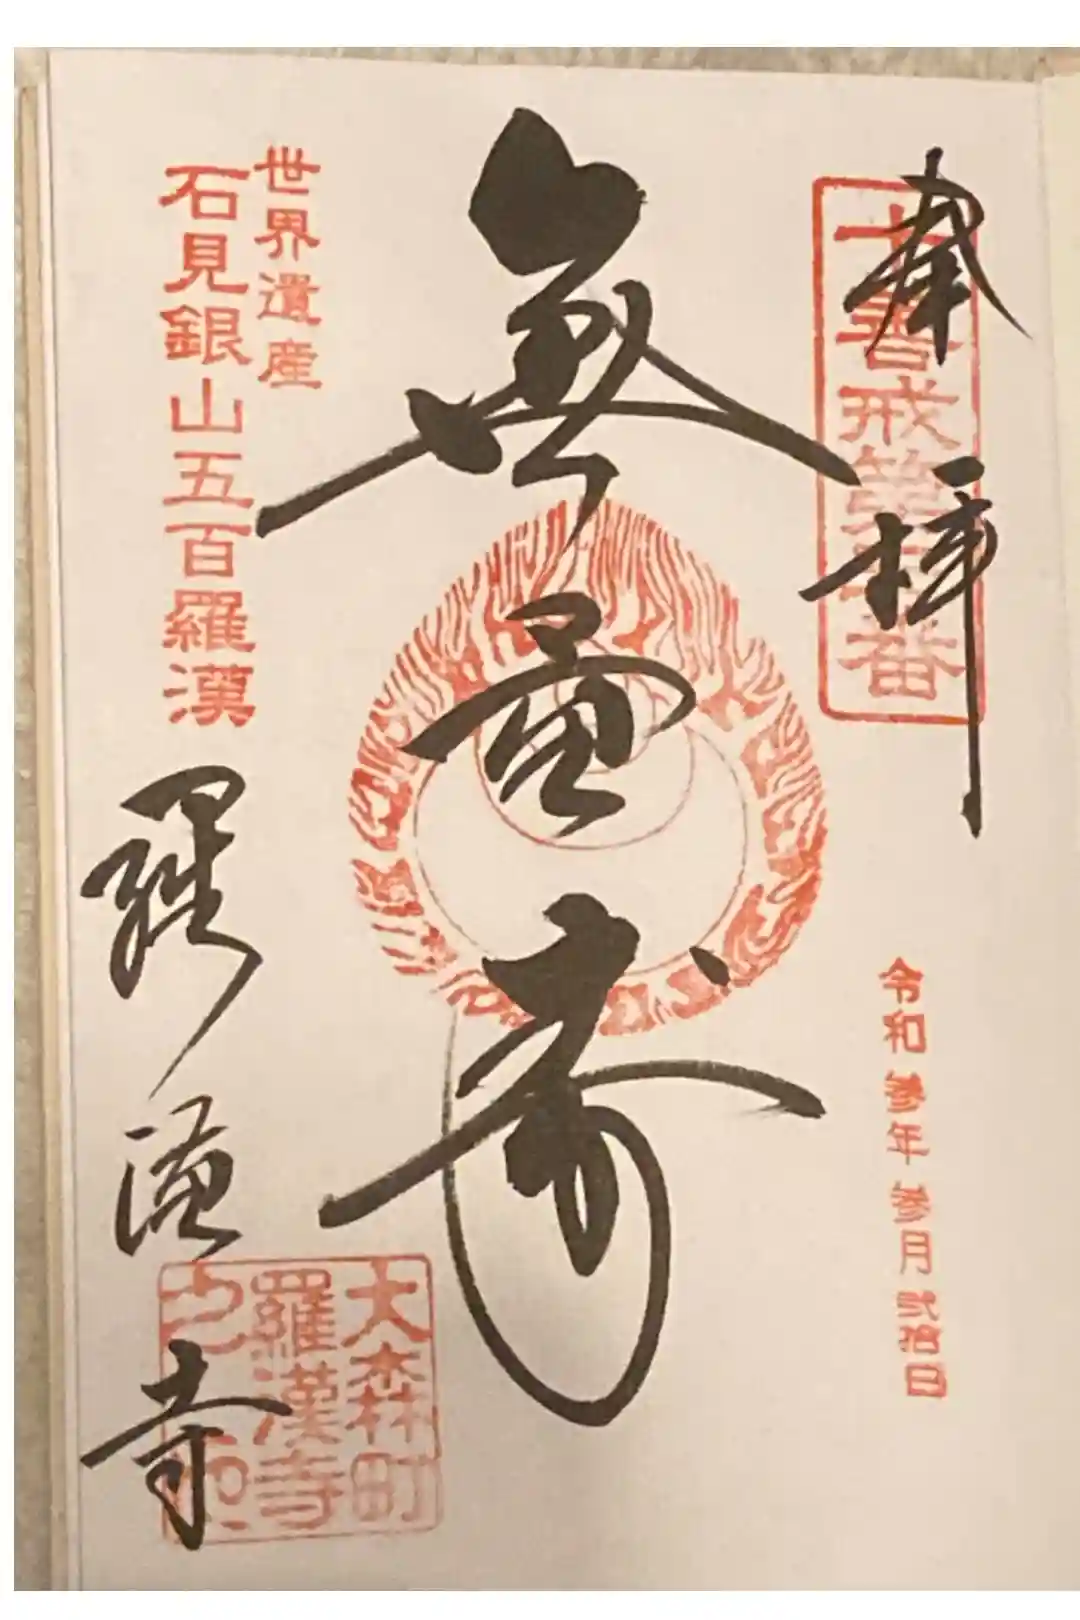 奉拝
令和参年参月弐拾日
無量寿
世界遺産
石見銀山五百羅漢
羅漢寺
大森町
羅漢寺